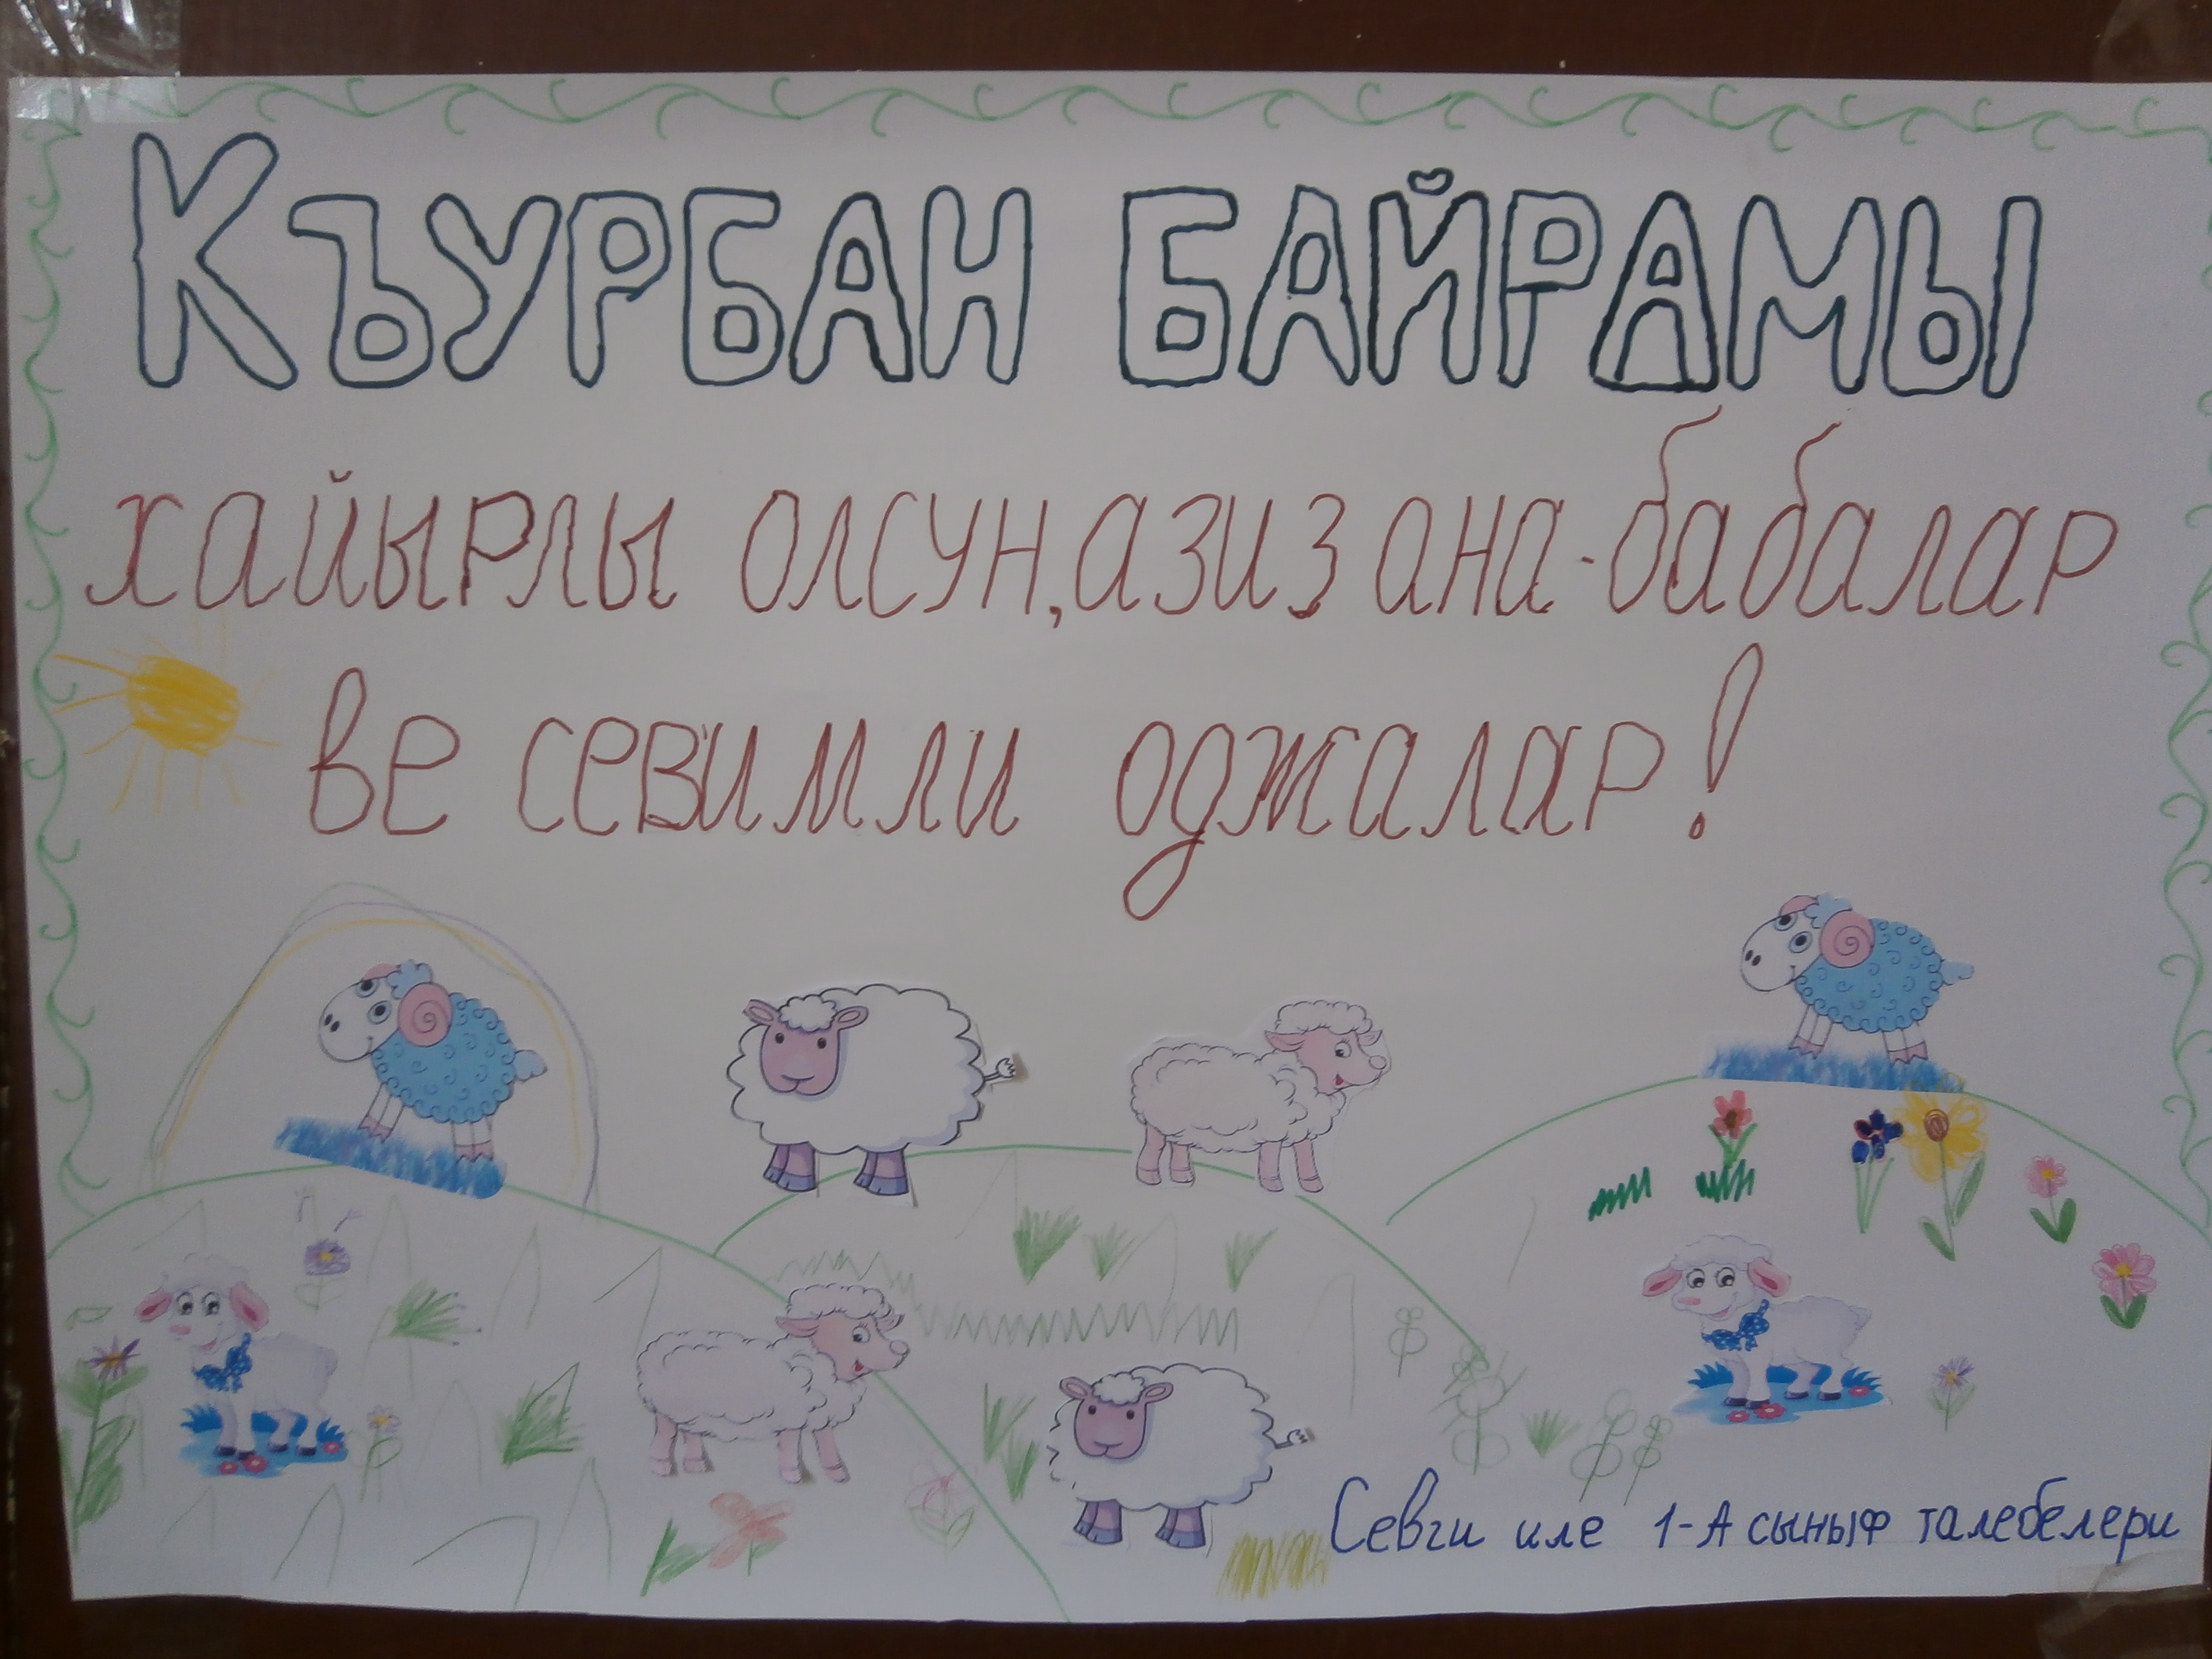 КЪУРБАН БАЙРАМЫ
хайырлы олсун, азиз ана-бабалар
ве севимли оджалар!
Севги иле 1-А сыныф талебелери